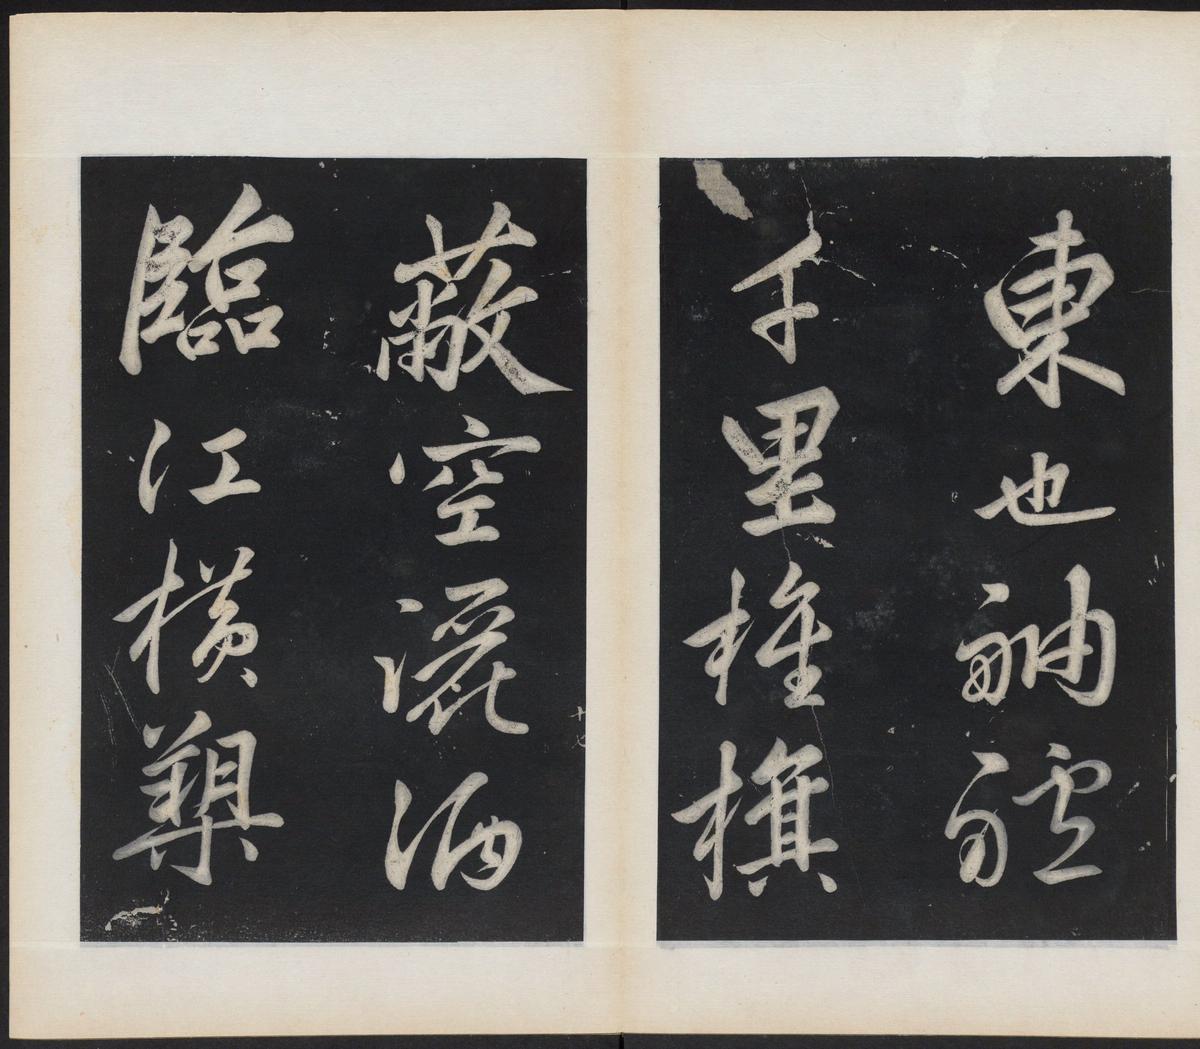 東也舳艫
千里旌旗
十七
蔽空灑酒
臨江橫槊